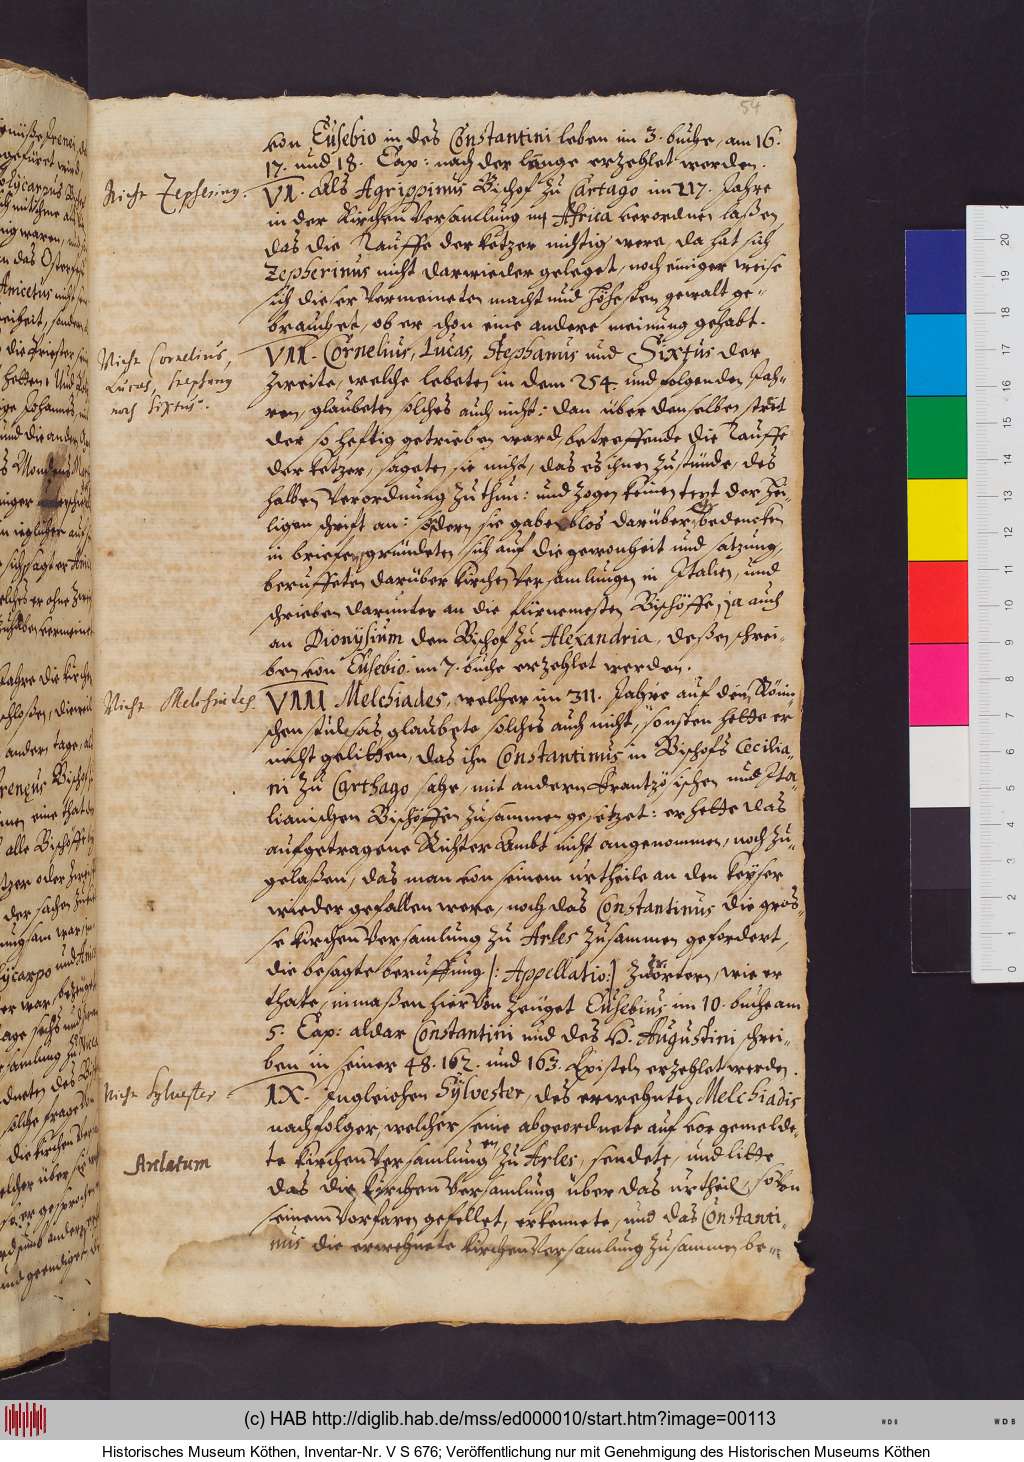 54
von Eusebio in des Constantini leben im 3. buche, am 16.
17. und 18. Cap: nach der länge erzehlet werden.
Nicht Zephering.
VII. Als Agrippinus Bischof zu Cartago im 217. Jahre
in der Kirchen Versamlung in Africa verordnen laßen
das die Tauffe der ketzer nichtig were, da hat sich
Zepherinus nicht darwieder geleget, noch einiger weise
sich dieser vermeineten macht und höhesten gewalt ge-
brauchet, ob er schon eine andere meinung gehabt.
Nicht Cornelius,
Lucas, Stephanus
noch Sixtus.
VIII. Cornelius, Lucas, Stephanus und Sixtus der
Zweite, welche lebeten in dem 254. und folgenden Jah-
ren, glaubeten solches auch nicht: dan über denselben streit
der so heftig getrieben ward, betreffende die Tauffe
der ketzer, sageten sie nicht, das es ihnen zustünde, des
halben verordnung zu thun: und zogen keinen text der Hei-
ligen schrift an: sondern sie gaben blos darüber ihr bedencken
in briefen, gründeten sich auf die gewonheit und satzung,
beruffeten darüber kirchen Versamlungen in Italien, und
schrieben darunter an die fürnemesten Bischöffe, ja auch
an Dionysium den Bischof zu Alexandria, deßen schrei-
ben von Eusebio im 7. buche erzehlet werden.
Nicht Melchiades.
VIIII Melchiades, welcher im 311. Jahre auf dem Römi-
schen stul sas, glaubete solches auch nicht, sonsten hette er
nicht gelitten, das ihn Constantinus in Bischofs Cecilia-
ni zu Carthago sache, mit andern Frantzösischen und Ita-
lianischen Bischöffen zusammen gesetzet: er hette das
aufgetragene Richter Ambt nicht angenommen, noch zu-
gelaßen, das man von seinem urtheile an den keyser
wieder gefallen were, noch das Constantinus die gros-
se kirchen Versamlung zu Arles zusammen gefordert,
die besagte beruffung |: Appellatio:| zuörtern, wie er
thate, inmaßen hiervon zeuget Eusebius im 10. buche am
5. Cap: aldar Constantini und des H. Augustini schrei-
ben in seiner 48. 162. und 163. Episteln erzehlet werden.
Nicht Sylvester
IX. Ingleichen Sylvester, des erwehnten Melchiadis
nachfolger, welcher seine abgeordnete auf vor gemelde-
Arelatum
te kirchen Versamlungen zu Arles, sendete, und litte
das die kirchen Versamlung über das urtheil, so von
seinem Vorfaren gefellet, erkennete, und das Constanti-
nus die erwehnete kirchen Versamlung zusammen be-
(c) HAB http://diglib.hab.de/mss/ed000010/start.htm?image=00113
Historisches Museum Köthen, Inventar-Nr. V S 676; Veröffentlichung nur mit Genehmigung des Historischen Museums Köthen